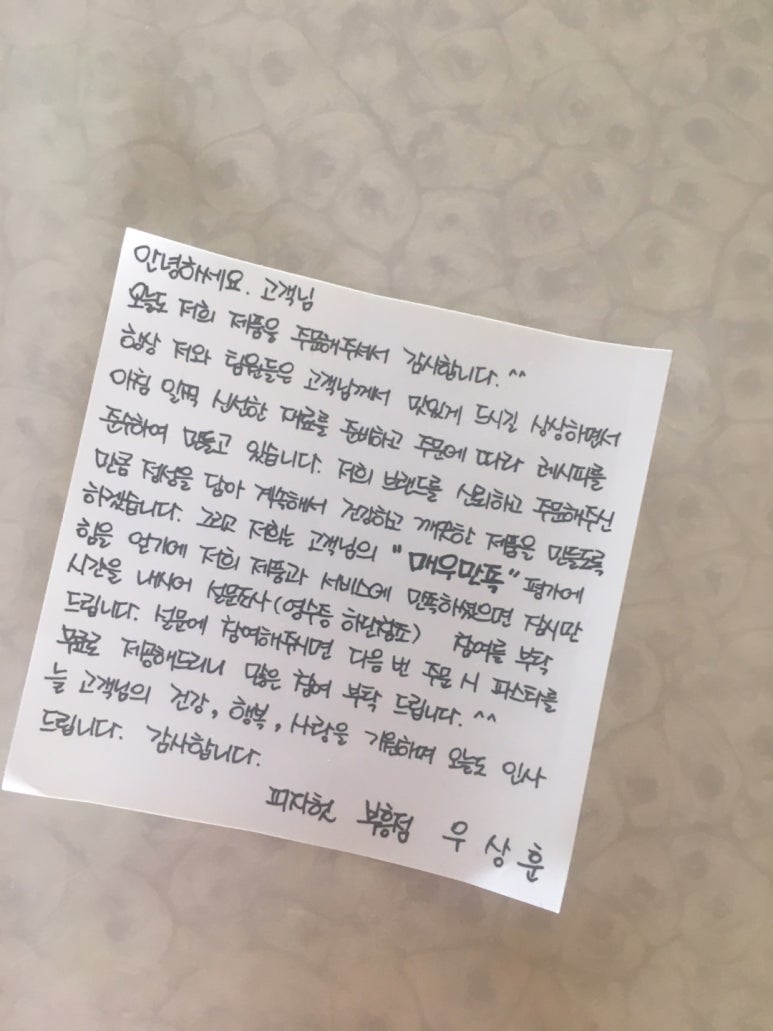 안녕하세요. 고객님
오늘도 저희 제품을 주문해주셔서 감사합니다. ^^
항상 저와 팀원들은 고객님께서 맛있게 드시길 상상하면서
아침 일찍 신선한 재료를 준비하고 주문에 따라 레시피를
준수하여 만들고 있습니다. 저희 브랜드를 신뢰하고 주문해주신
만큼 정성을 담아 계속해서 건강하고 깨끗한 제품을 만들도록
하겠습니다. 그리고 저희는 고객님의 "매우만족" 평가에
힘을 얻기에 저희 제품과 서비스에 만족하셨으면 잠시만
시간을 내시어 설문조사(영수증 하단참조) 참여를 부탁
드립니다. 설문에 참여해주시면 다음 번 주문 시 파스타를
무료로 제공해드리니 많은 참여 부탁 드립니다. ^^
늘 고객님의 건강, 행복, 사랑을 기원하며 오늘도 인사
드립니다. 감사합니다.
피자헛 부흥점 우상훈